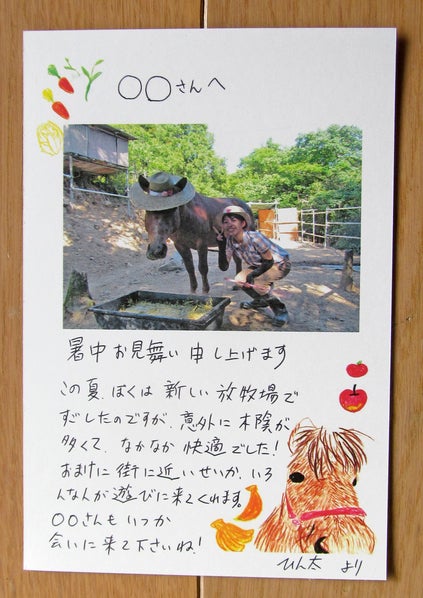 ○○さんへ
暑中お見舞い申し上げます
この夏、ぼくは新しい放牧場で
すごしたのですが、意外に木陰が
多くて、なかなか快適でした!
おまけに街に近いせいか、いろ
んな人が遊びに来てくれます。
○○さんもいつか
会いに来て下さいね!
ひん太 より